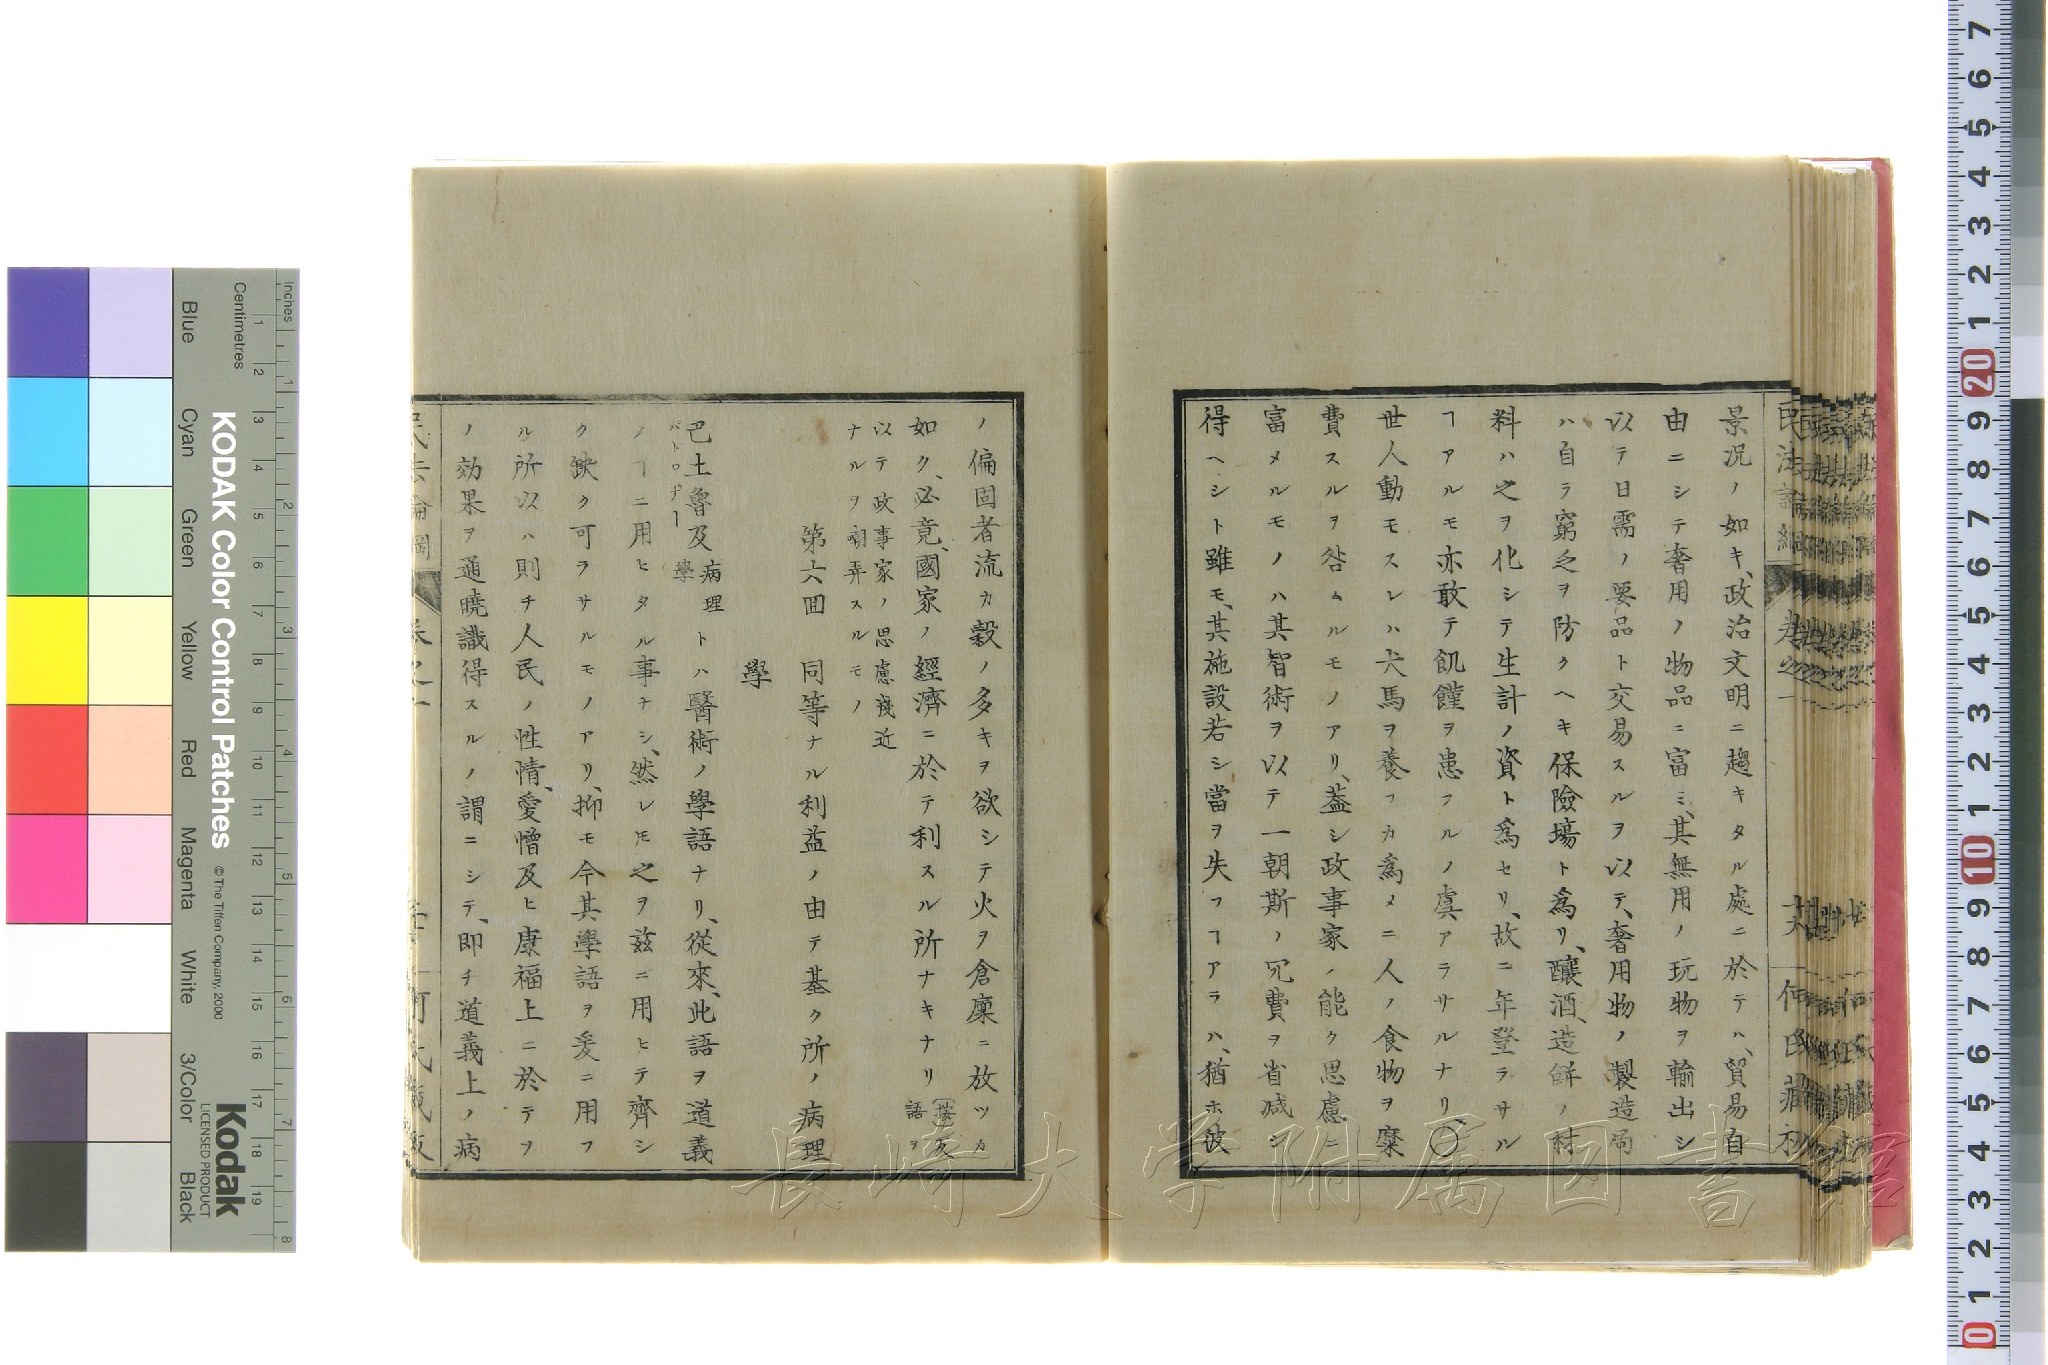 景况ノ如キ、政治文明ニ趨キタル處ニ於テハ、貿易自
由ニシテ奢用ノ物品ニ富ミ、其無用ノ玩物ヲ輸出シ
以テ日需ノ要品ト交易スルヲ以テ、奢用物ノ製造局
ハ自ラ窮乏ヲ防クヘキ保險塲ト為リ、釀酒、造餅ノ材
料ハ之ヲ化シテ生計ノ資ト為セリ、故ニ年登ラサル
ヿアルモ亦敢テ飢饉ヲ患フルノ虞アラサルナリ○
世人動モスレハ犬馬ヲ養フカ為メニ人ノ食物ヲ糜
費スルヲ咎ムルモノアリ、蓋シ政事家ノ能ク思慮ニ
富メルモノハ其智術ヲ以テ一朝斯ノ冗費ヲ省減シ
得ヘシト雖モ、其施設若シ當ヲ失フヿアラハ、猶ホ彼
ノ偏固者流カ穀ノ多キヲ欲シテ火ヲ倉廩ニ放ツカ
如ク、必竟、國家ノ經濟ニ於テ利スル所ナキナリ
語ヲ
以テ政事家ノ思慮淺近
ナルヲ嘲弄スルモノ
第六回 同等ナル利益ノ由テ基ク所ノ病理
學
巴土魯及 病理學 トハ醫術ノ學語ナリ、從來、此語ヲ道義
パトロヂー
ノヿニ用ヒタル事ナシ、然レ𪜈之ヲ茲ニ用ヒテ齊シ
ク缺ク可ラサルモノアリ、抑モ今其學語ヲ爰ニ用フ
ル所以ハ則チ人民ノ性情、愛憎及ヒ康福上ニ於テヲ
ノ効果ヲ通曉識得スルノ謂ニシテ、即チ道義上ノ病
民法論綱 卷之一 何氏藏板
長崎大学附属図書館
KODAK Color Control Patches
© The Tiffen Company, 2000
Kodak
LICENSED PRODUCT
Inches
Centimetres
Blue Cyan Green Yellow Red Magenta White 3/Color Black